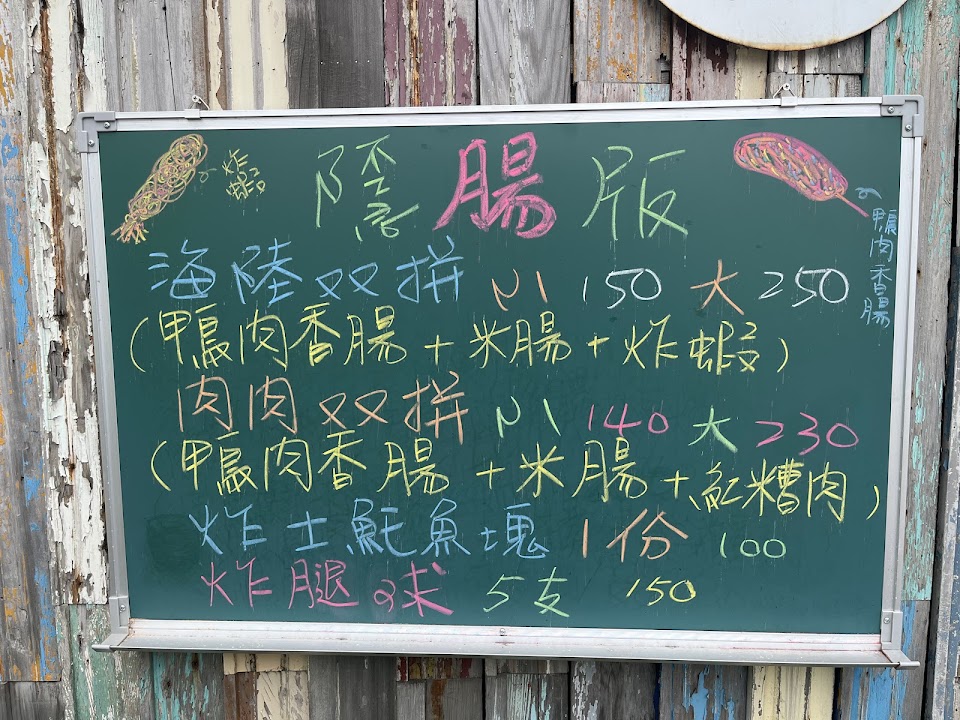 炸蝦
隱腸版
鴨肉香腸
海陸双拼 小 150 大 250
(鴨肉香腸 + 米腸 + 炸蝦)
肉肉双拼 小 140 大 230
(鴨肉香腸 + 米腸 + 紅糟肉)
炸土魠魚塊 1份 100
炸腿球 5支 150